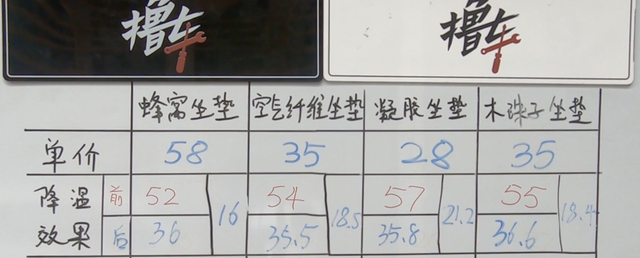 撸车 撸车
蜂窝坐垫 空气纤维坐垫 凝胶坐垫 木珠子坐垫
单价 58 35 28 35
降温 前 52 16 54 18.5 57 21.2 55 18.4
效果 后 36 35.5 35.8 36.6